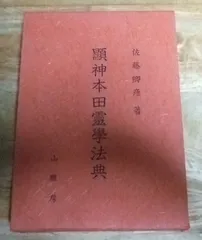 佐藤卿彦 著
顯神本田靈學法典
山雅房